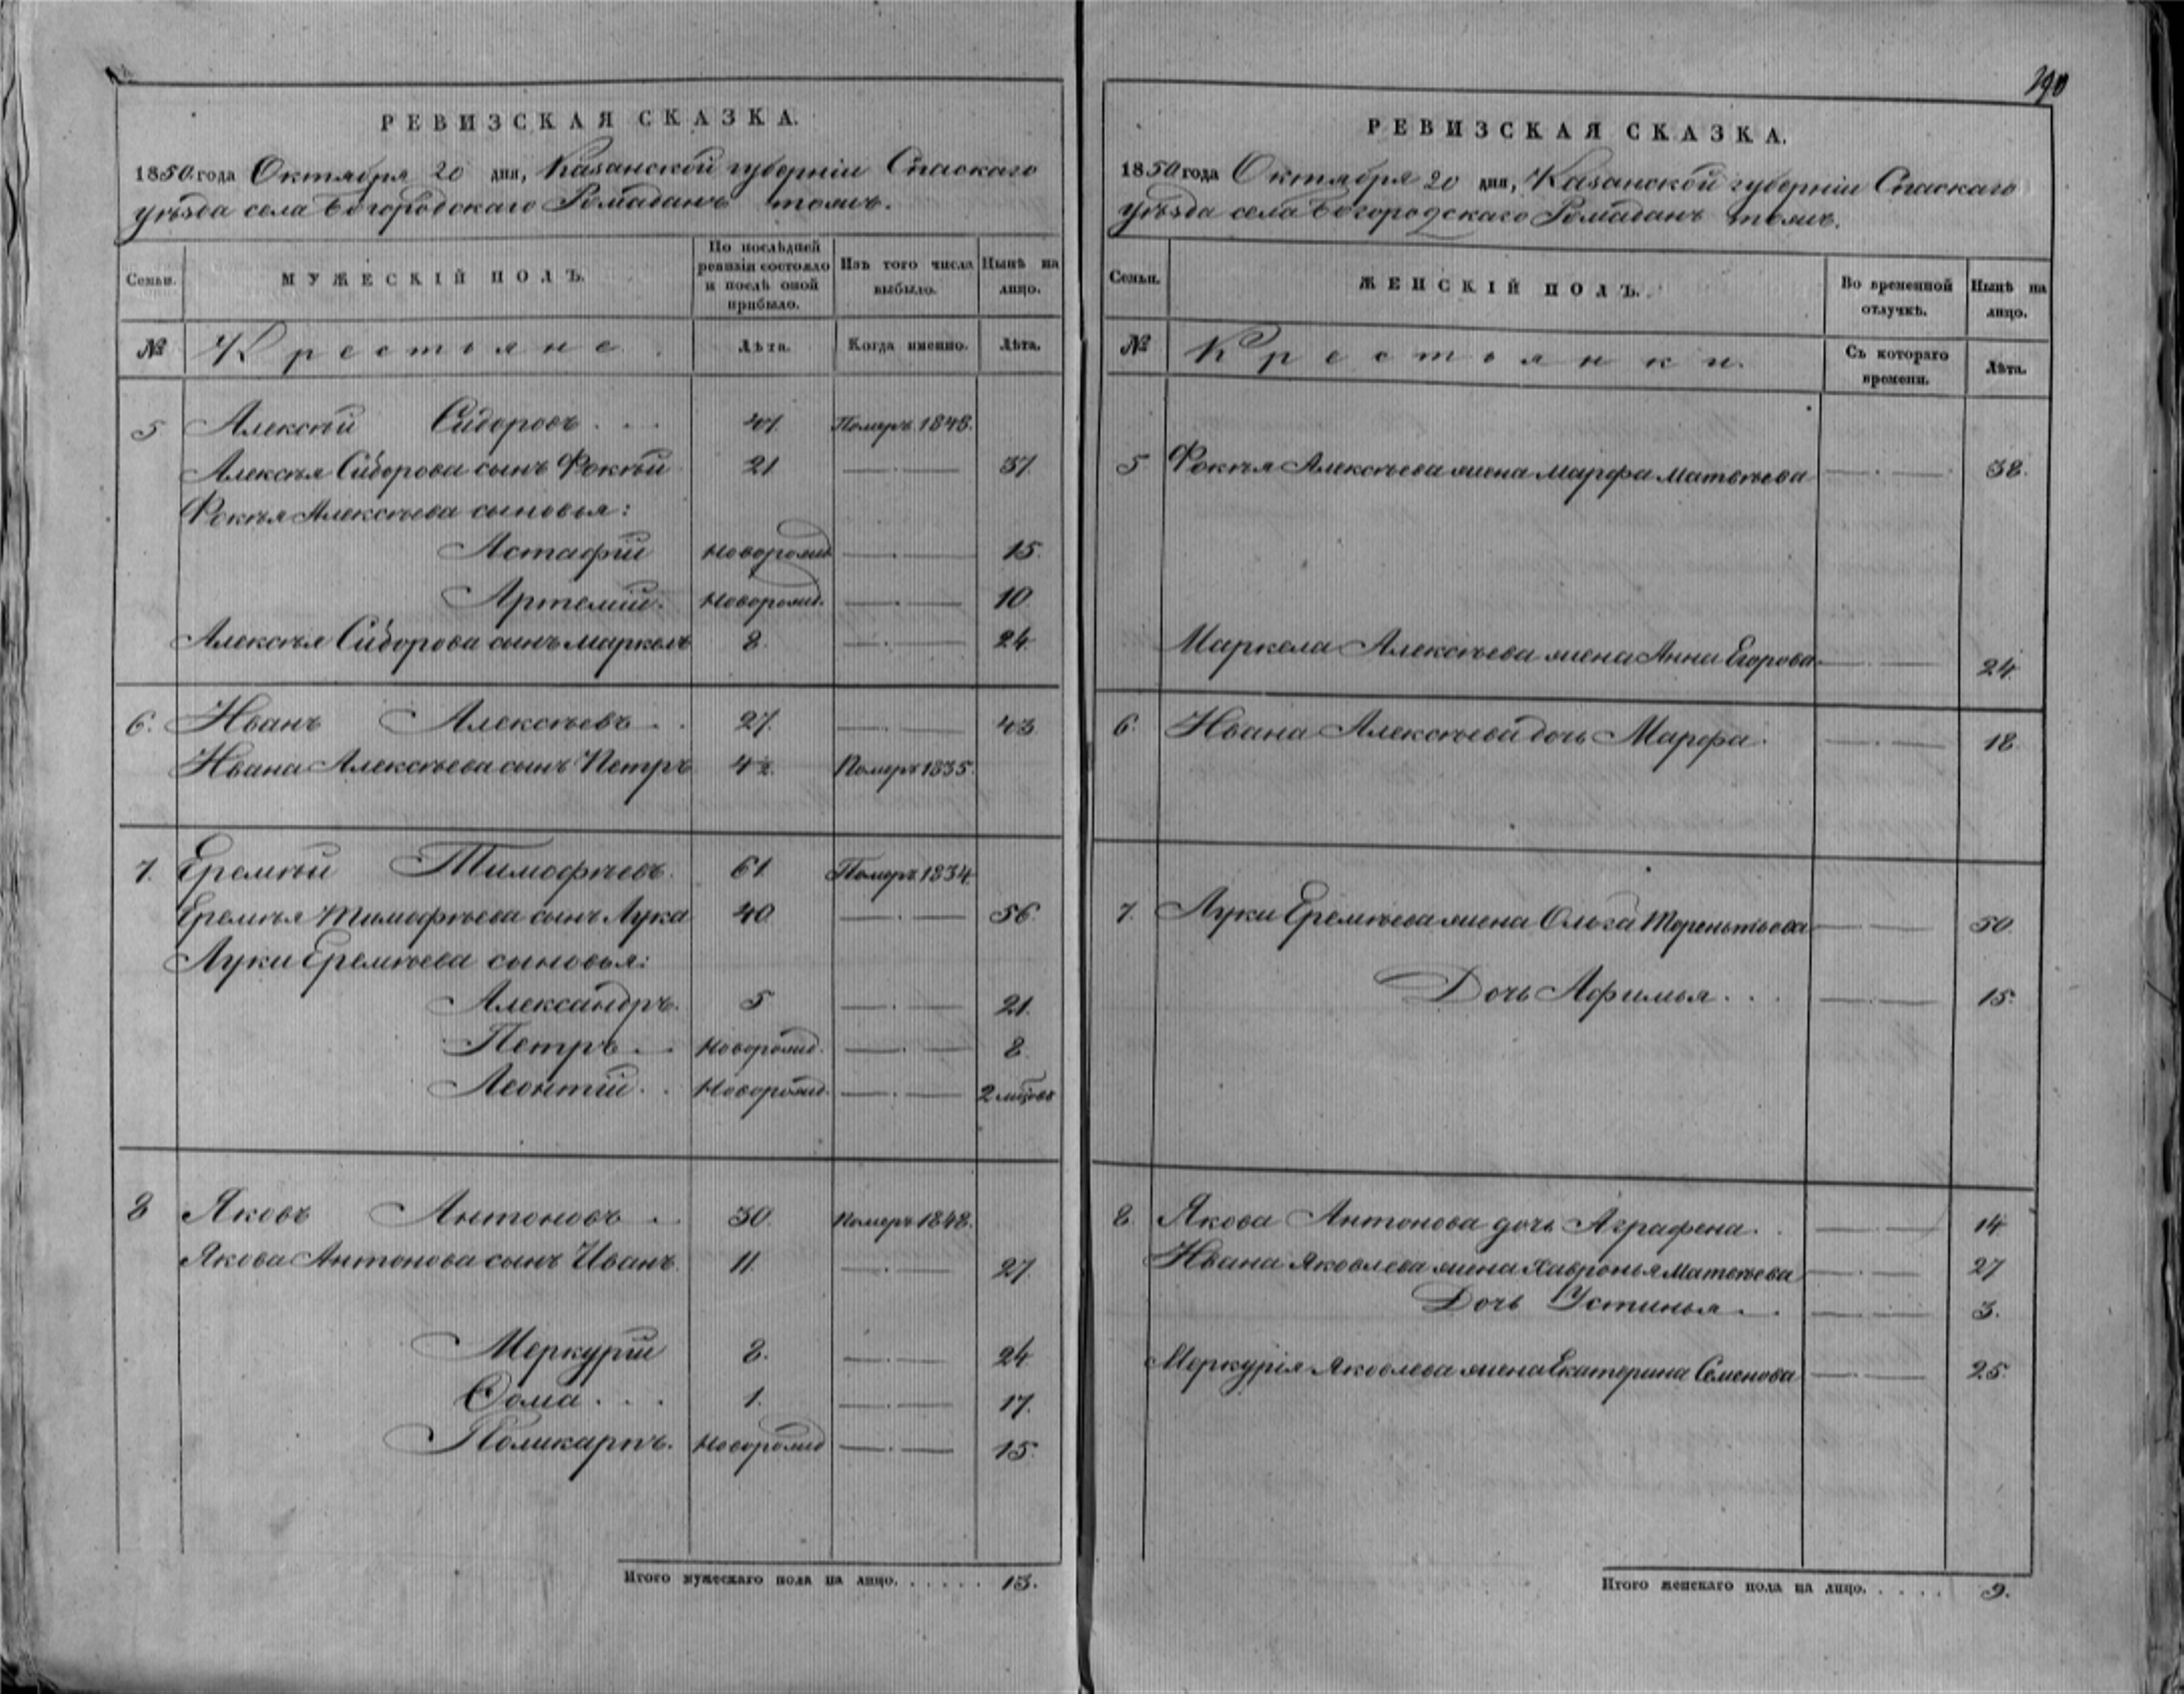 290
РЕВИЗСКАЯ СКАЗКА.
1850 года Октября 20 дня, Казанской губерніи Спаскаго
уѣзда села Богородскаго Ромаданъ тожъ.
Семьи. МУЖЕСКІЙ ПОЛЪ. По послѣдней ревизіи состояло и послѣ оной прибыло. Изъ того числа выбыло. Нынѣ на лицо.
№ Крестьяне. Лѣта. Когда именно. Лѣта.
5 Алексѣй Сидоровъ . . . 47. Померъ 1848.
Алексѣя Сидорова сынъ Фокѣй 21 37
Фокѣя Алексѣева сыновья:
Астафій Новорожд 15.
Артемій. Новорожд. 10.
Алексѣя Сидорова сынъ Маркелъ 8. 24
6. Иванъ Алексѣевъ . . 27. 43
Ивана Алексѣева сынъ Петръ 4½. Померъ 1835.
7. Еремѣй Тимофѣевъ. 61. Померъ 1834.
Еремѣя Тимофѣева сынъ Лука 40. 56.
Луки Еремѣева сыновья:
Александръ. 5 21.
Петръ . . Новорожд. 8.
Леонтій . . Новорожд. 2 мѣсов
8 Яковъ Антоновъ . 30. Померъ 1848.
Якова Антонова сынъ Иванъ 11. 27.
Меркурій 8. 24
Фома . . . 1. 17.
Поликарпъ. Новорожд 15.
Итого мужескаго пола на лицо. . . . . . 13.
РЕВИЗСКАЯ СКАЗКА.
1850 года Октября 20 дня, Казанской губерніи Спаскаго
уѣзда села Богородскаго Ромаданъ тожъ.
Семьи. ЖЕНСКІЙ ПОЛЪ. Во временной отлучкѣ. Нынѣ на лицо.
№ Крестьянки. Съ котораго времени. Лѣта.
5 Фокѣя Алексѣева жена Марфа Матвѣева 38.
Маркела Алексѣева жена Анна Егорова 24
6. Ивана Алексѣева дочь Марфа. 18.
7. Луки Еремѣева жена Ольга Терентьева 50
Дочь Афимья . . . 15.
8. Якова Антонова дочь Аграфена. . 14
Ивана Яковлева жена Хавронья Матвѣева 27
Дочь Устинья . . 3.
Меркурія Яковлева жена Екатерина Семенова 25.
Итого женскаго пола на лицо. . . . . 9.